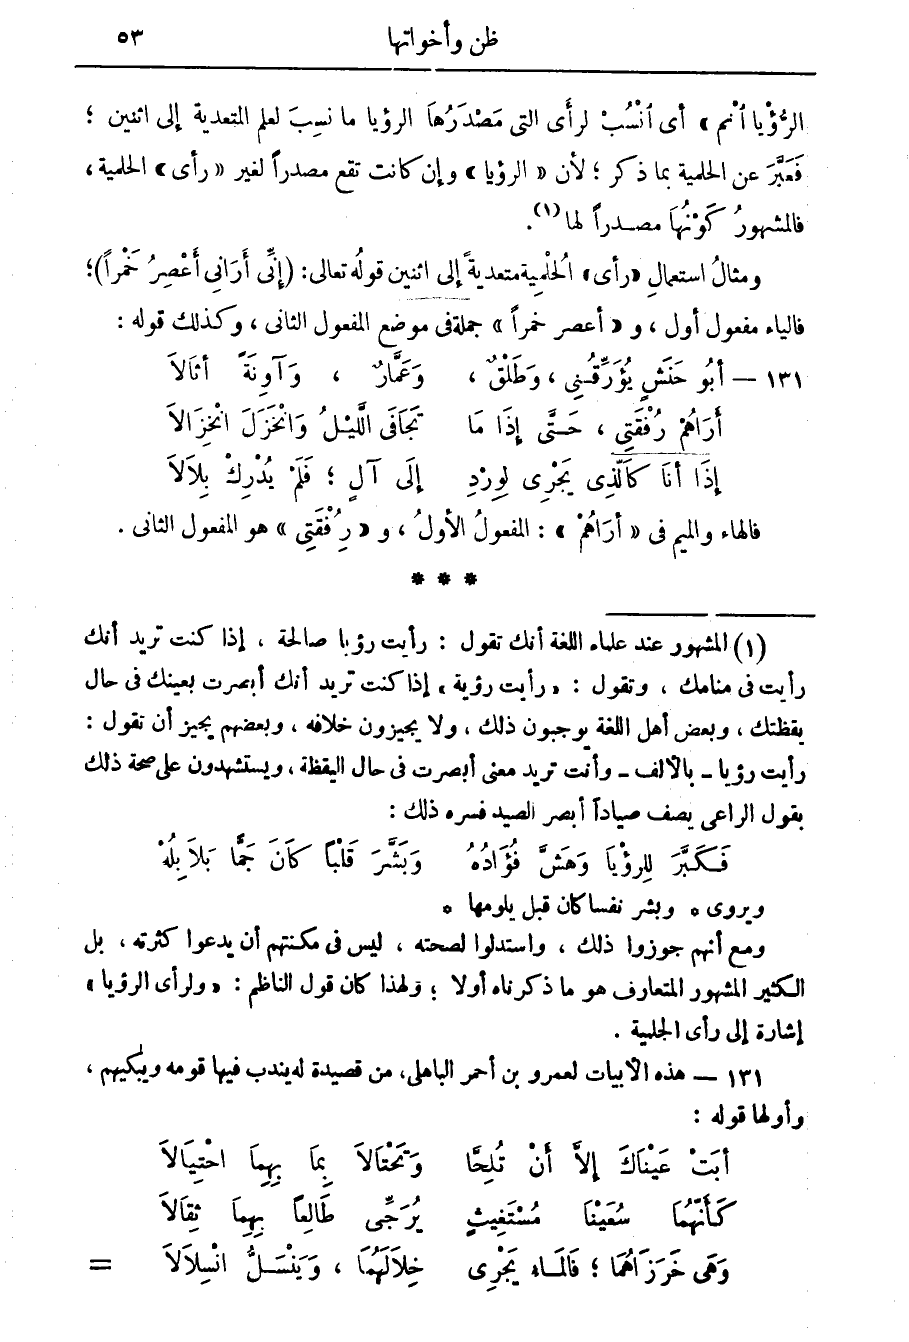 ظن وأخواتها ٥٣
الرُّؤْيا ٱنْمِ » أى ٱنْسُبْ لرأَى التى مَصْدَرُهَا الرؤيا ما نسِبَ لعلم المتعدية إلى اثنين ؛
فَعَبَّرَ عن الحلمية بما ذكر ؛ لأن « الرؤيا » وإن كانت تقع مصدراً لغير « رأى » الحلمية ،
فالمشهورُ كَوْنُهَا مصدراً لها (١) .
ومثالُ استعمالِ « رأى » الْحُلْمِية متعديةً إلى اثنين قولُه تعالى : (إِنِّى أَرَانِى أَعْصِرُ خَمْراً) ؛
فالياء مفعول أول ، و « أعصر خمراً » جملة فى موضع المفعول الثانى ، وكذلك قوله :
١٣١ — أبُو حَنَشٍ يُؤَرِّقُنِى ، وَطَلْقٌ ، وَعَمَّارٌ ، وَآوِنَةً أثَالاَ
أَرَاهُمْ رُفْقَتِى ، حَتَّى إِذَا مَا تَجَافَى اللَّيْلُ وَانْخَزَلَ انْخِزَالاَ
إِذَا أنَا كَالَّذِى يَجْرِى لِوِرْدٍ إلَى آلٍ ؛ فَلَمْ يُدْرِكْ بِلاَلاَ
فالهاء والميم فى « أرَاهُمْ » : المفعولُ الأولُ ، و « رِفُقَتِى » هو المفعول الثانى .
* * *
(١) المشهور عند علماء اللغة أنك تقول : رأيت رؤيا صالحة ، إذا كنت تريد أنك
رأيت فى منامك ، وتقول : « رأيت رؤية » إذا كنت تريد أنك أبصرت بعينك فى حال
يقظتك ، وبعض أهل اللغة يوجبون ذلك ، ولا يجيزون خلافه ، وبعضهم يجيز أن تقول :
رأيت رؤيا ــ بالألف ــ وأنت تريد معنى أبصرت فى حال اليقظة ، ويستشهدون على صحة ذلك
بقول الراعى يصف صياداً أبصر الصيد فسره ذلك :
فَكَبَّرَ لِلرُّؤْيَا وَهَشَّ فُؤَادُهُ وَبَشَّرَ قَلْبًا كَانَ جَمًّا بَلاَبِلُهْ
ويروى * وبشر نفسا كان قبل يلومها *
ومع أنهم جوزوا ذلك ، واستدلوا لصحته ، ليس فى مكنتهم أن يدعوا كثرته ، بل
الكثير المشهور المتعارف هو ما ذكرناه أولا ؛ ولهذا كان قول الناظم : « ولرأى الرؤيا »
إشارة إلى رأى الحلمية .
١٣١ — هذه الأبيات لعمرو بن أحمر الباهلى ، من قصيدة له يندب فيها قومه ويبكيهم ،
وأولها قوله :
أبَتْ عَيْنَاكَ إلاَّ أنْ تُلِحَّا وَتَحْتَالاَ بِمَا بِهِمَا احْتِيَالاَ
كَأَنَّهُمَا سُعَيْنَا مُسْتَغِيثٍ يُرَجِّى طَالِعاً بِهِمَا ثِقَالاَ
وَهَى خَرَزَاهُمَا ؛ فَالْمَاء يَجْرِى خِلاَلَهُمَا ، وَيَنْسَلُّ انْسِلاَلاَ =